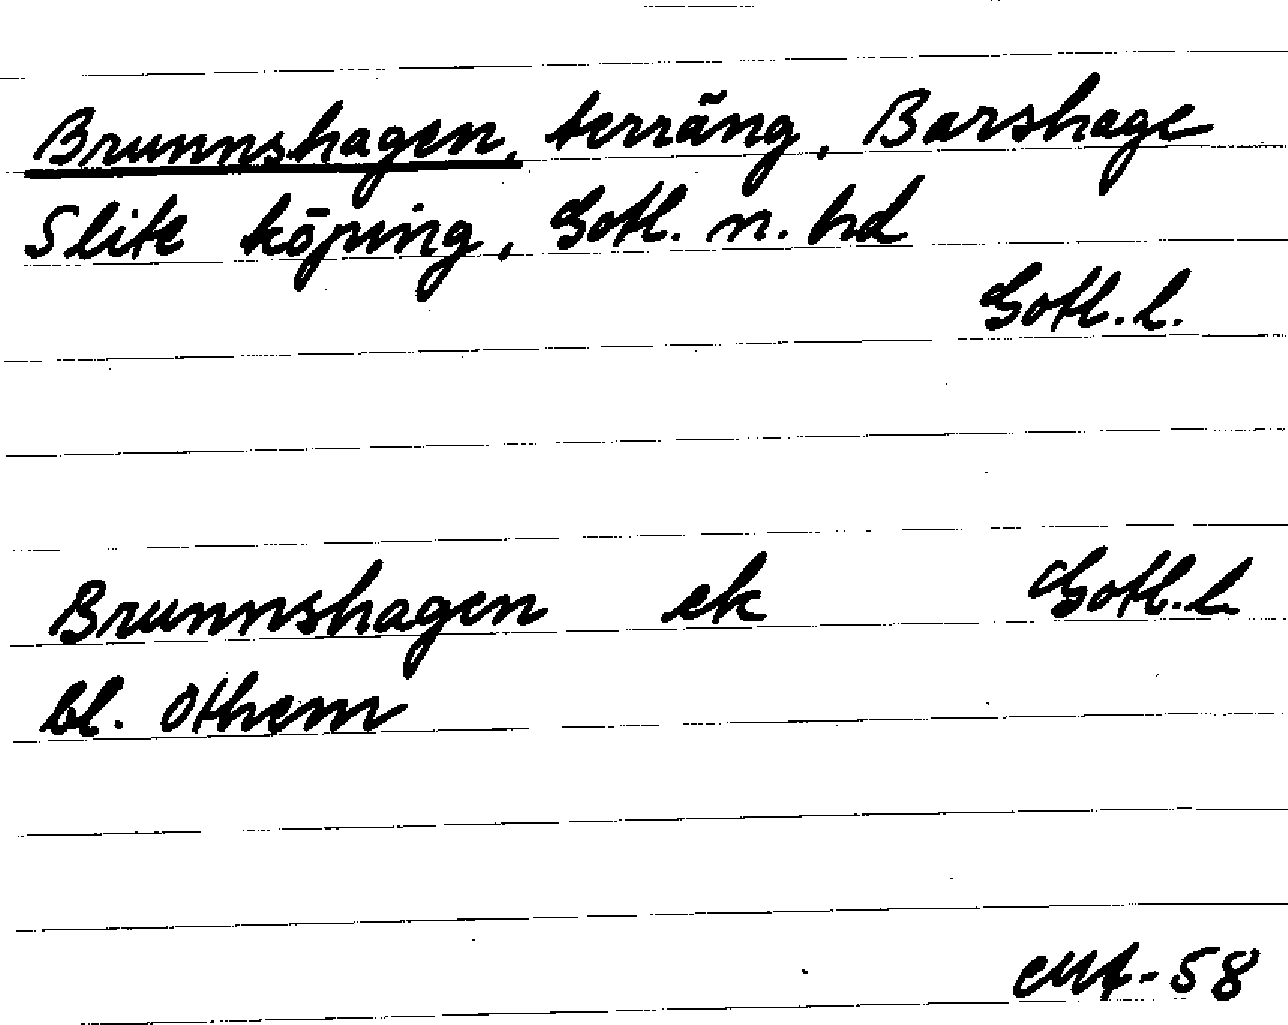 Brunnshagen, terräng, Barshage
Slite köping, Gotl. n. hd
Gotl. l.
Brunnshagen ek Gotl. l.
bl. Othem
-58